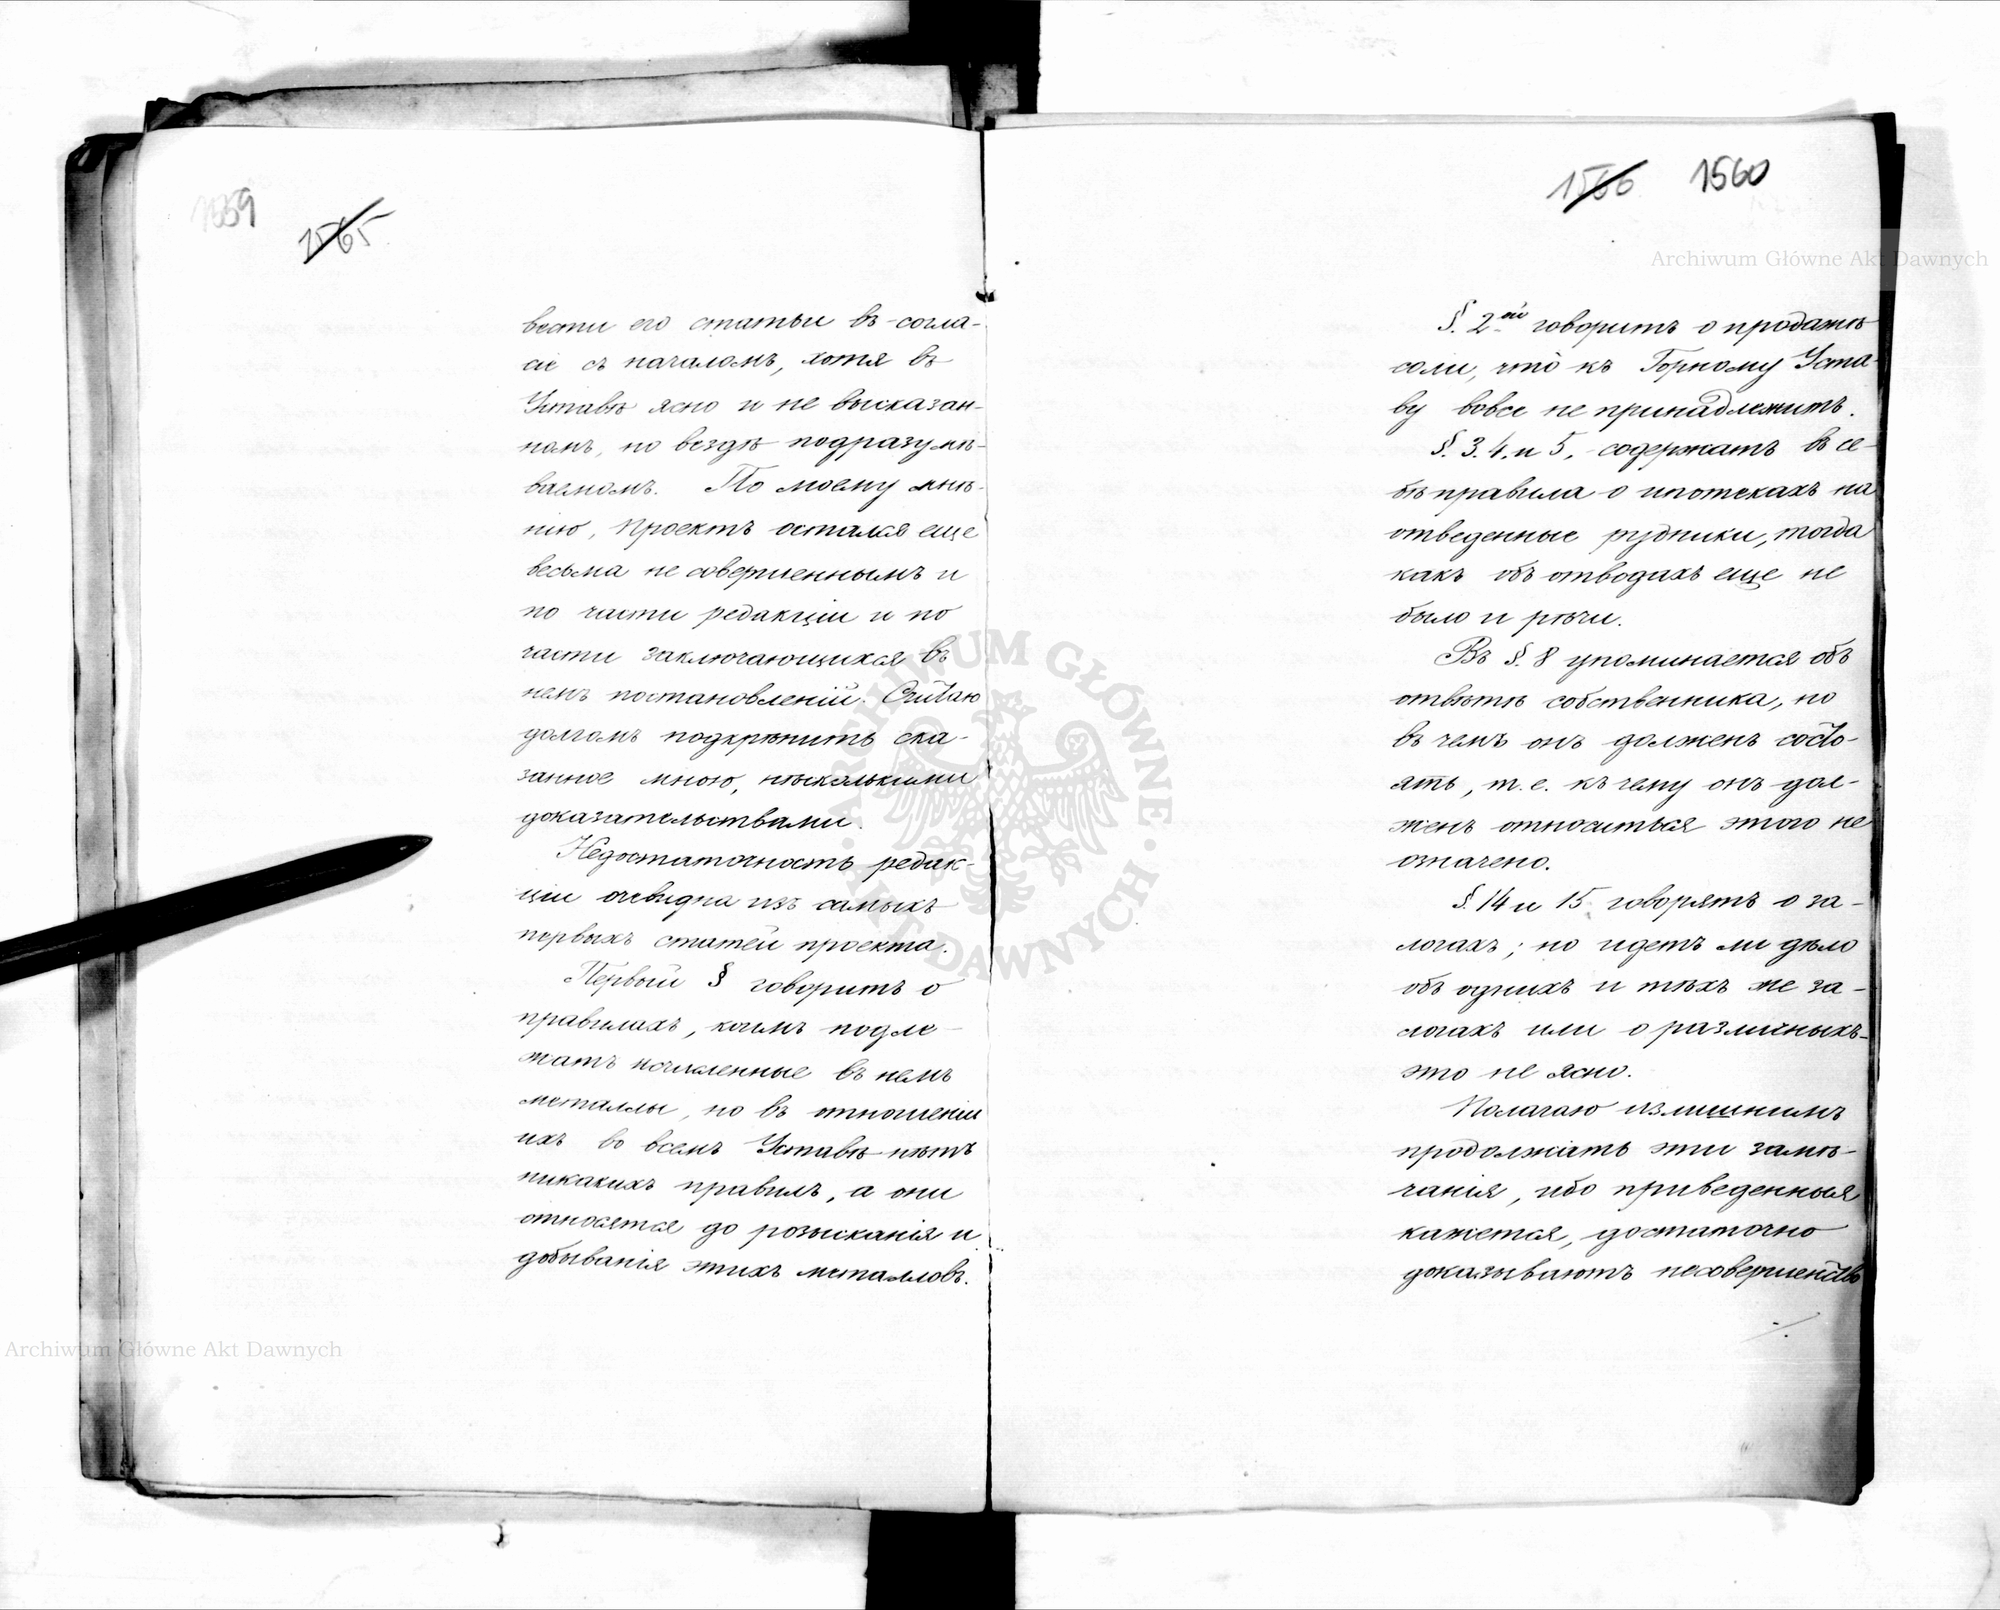 1559
1565
вести его статьи въ согла-
сіе съ началомъ, хотя въ
Уставѣ ясно и не высказан-
нымъ, но вездѣ подразумѣ-
ваемомъ. По моему мнѣ-
нію, проектъ остался еще
весьма не совершеннымъ и
по части редакціи и по
части заключающихся въ
немъ постановленій. Считаю
долгомъ подкрѣпить ска-
занное мною, нѣсколькими
доказательствами.
Недостаточность редак-
ціи очевидна изъ самыхъ
первыхъ статей проекта.
Первый § говоритъ о
правилахъ, коимъ подле-
жатъ исчисленные въ немъ
металлы, но въ отношеніи
ихъ во всемъ Уставѣ нѣтъ
никакихъ правилъ, а они
относятся до розысканія и
добыванія этихъ металловъ.
1566 1560
§. 2ой говоритъ о продажѣ
соли, что къ Горному Уста-
ву вовсе не принадлежитъ.
§. 3. 4. и 5. содержатъ въ се-
бѣ правила о ипотекахъ на
отведенные рудники, тогда
какъ объ отводахъ еще не
было и рѣчи.
Въ §. 8 упоминается объ
отвѣтѣ собственника, но
въ чемъ онъ долженъ состо-
ять, т. е. къ чему онъ дол-
женъ относиться этого не
означено.
§. 14 и 15 говорятъ о за-
логахъ; но идетъ ли дѣло
объ однихъ и тѣхъ же за-
логахъ или о различныхъ-
это не ясно.
Полагаю излишнимъ
продолжать эти замѣ-
чанія, ибо приведенныя
кажется, достаточно
доказываютъ несовершенство
Archiwum Główne Akt Dawnych
Archiwum Główne Akt Dawnych
ARCHIWUM GŁÓWNE
AKT DAWNYCH